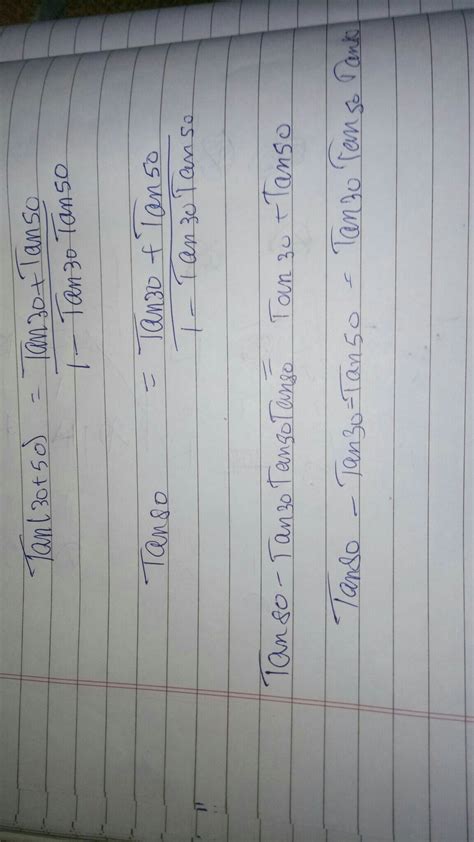 Tan(30+50) = Tan30+Tan50 / 1 - Tan30 Tan50
Tan80 = Tan30 + Tan50 / 1 - Tan30 Tan50
Tan80 - Tan30 Tan50 Tan80 = Tan30 + Tan50
Tan80 - Tan30 = Tan50 = Tan30 Tan50 Tan80